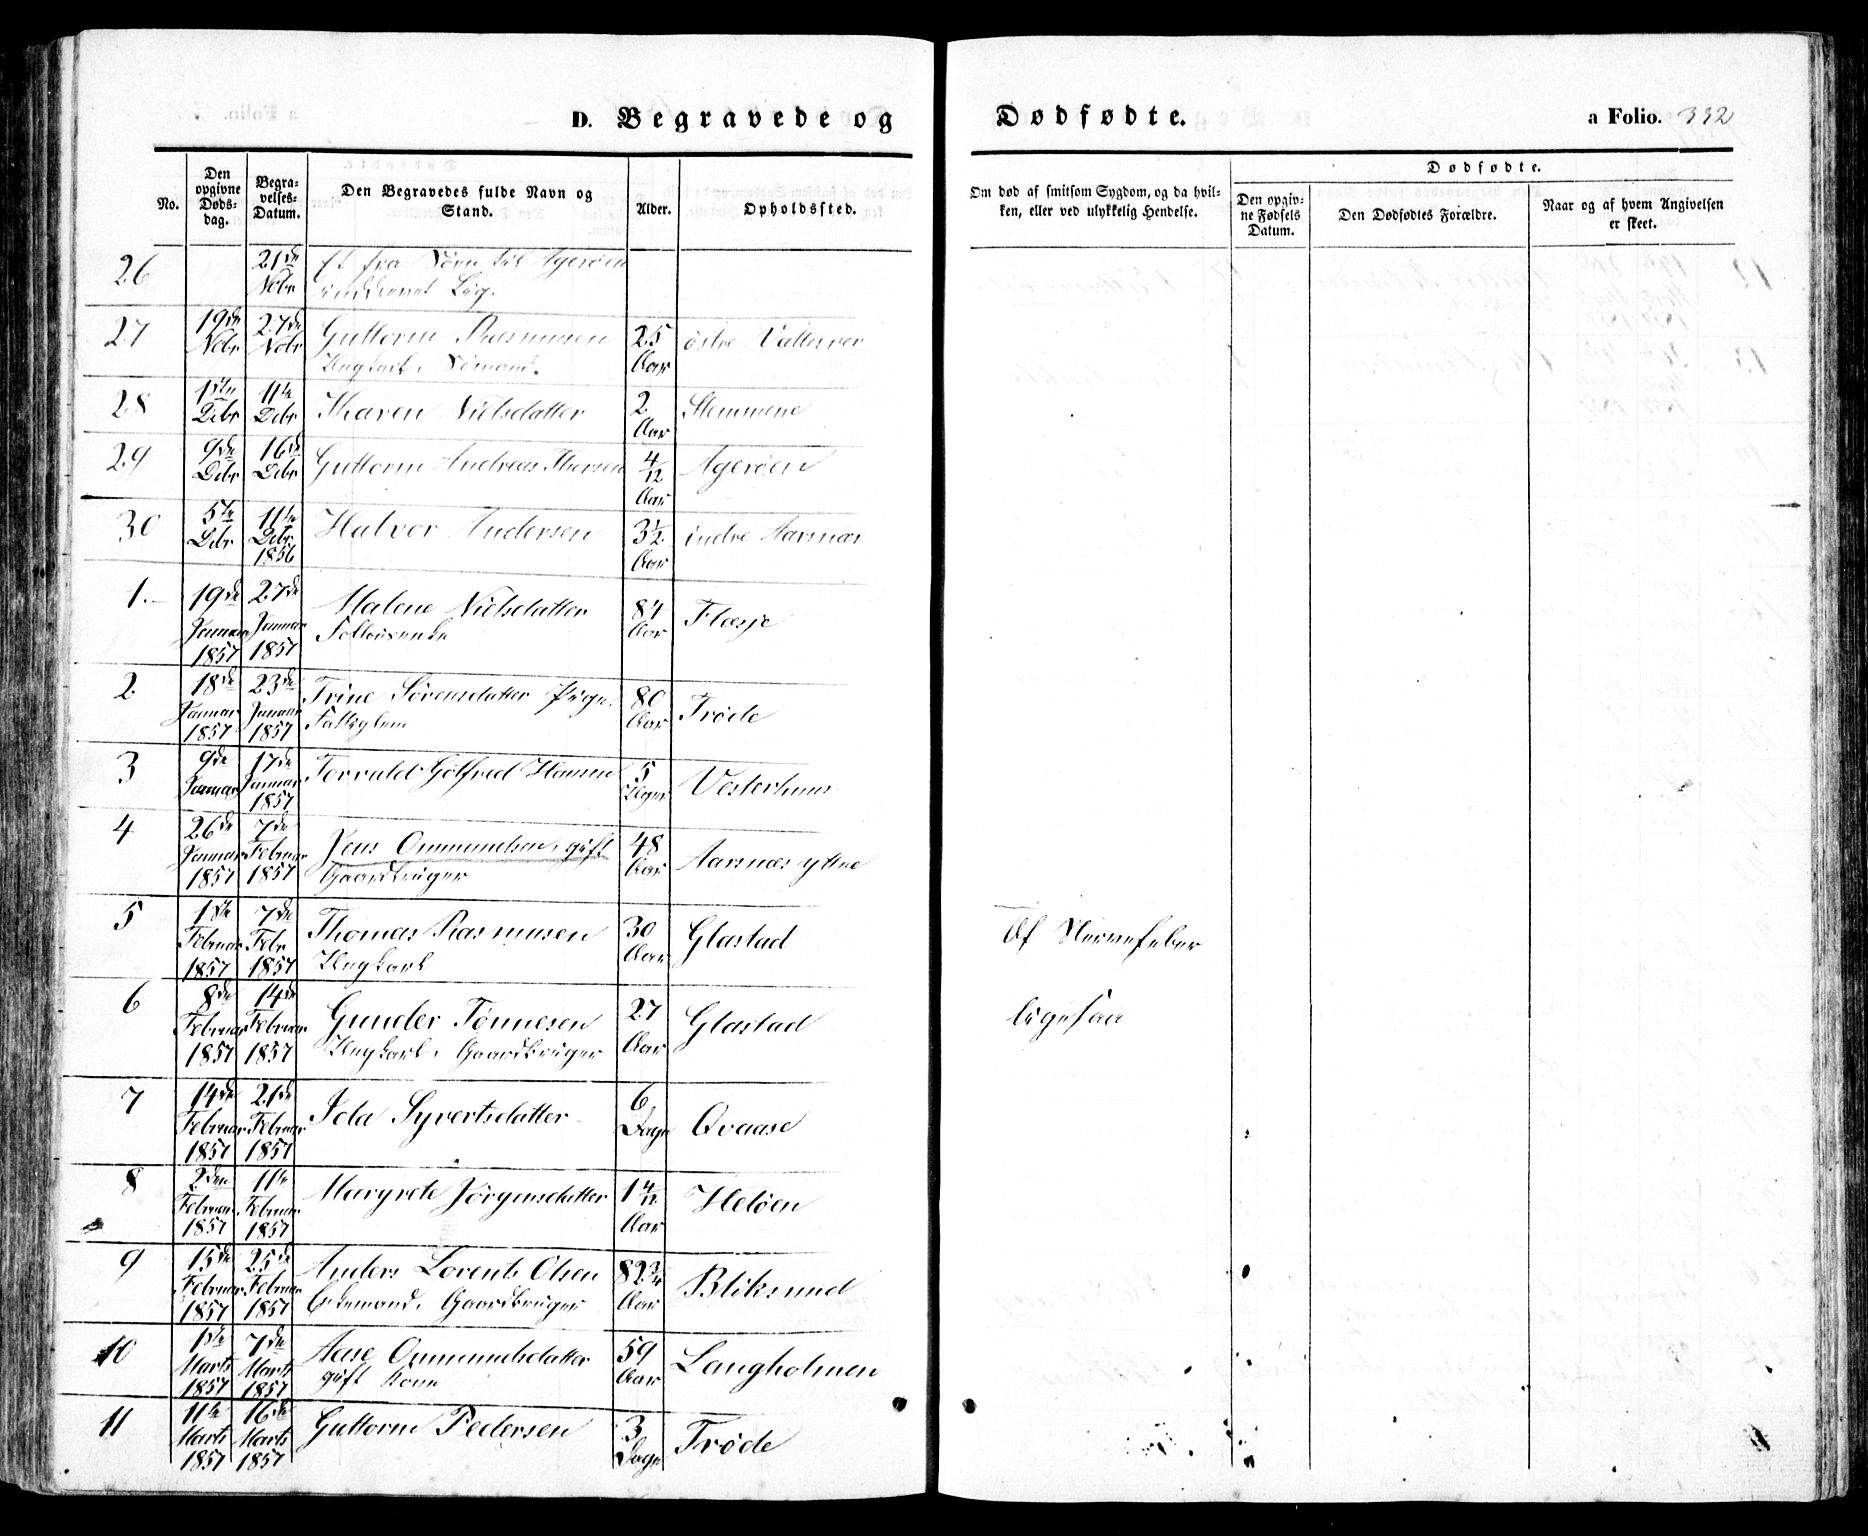 D. Begravede og Dødfødte. a Folio. 332
No.
Den opgivne Døds-dag.
Begra-velses-Datum.
Den Begravedes fulde Navn og Stand.
Alder.
Opholdssted.
Om død af smitsom Sygdom, og da hvil-
ken, eller ved ulykkelig Hendelse.
Dødfødte.
Den opgiv-ne Fødsels Datum.
Den Dødfødtes Forældre.
Naar og af hvem Angivelsen er skeet.
26 21de Nobr Et fra Søen til Agerøen
inddrevet Lig.
27 19de Nobr 27de Nobr Guttorm Rasmusen 25 Aar østre Vallesver
Ungkarl, Sömand.
28 1ste Debr 11te Debr Karen Nielsdatter 2 Aar Stemmene
29 9de Debr 16de Debr Guttorm Andreas Thorsen 4/12 Aar Agerøen
30 5te Debr 11te Debr 1856 Halvor Andersen 3½ Aar indre Aarsnæs
1. 19de Januar 1857 27de Januar 1857 Malene Nielsdatter 84 Aar Flæsje
2. 18de Januar 1857 23de Januar 1857 Trine Sörensdatter Pige, 80 Aar Trøde
Fattiglem
3 9de Januar 17de Januar 1857 Torvald Gölfred Hansen 5 Uger Vesterhuus
4 26de Januar 1857 7de Februar 1857 Jens Onmundsen, gift 48 Aar Aarsnæs yttre
Gaardbruger
5 1ste Februar 1857 7de Febr 1857 Thomas Rasmusen 30 Aar Glastad Af Nervefeber
Ungkarl
6 8de Februar 1857 14de Februar 1857 Gunder Tønnesen 27 Aar Glastad ligesaa
Ungkarl, Gaardbruger
7 14de Februar 1857 21de Februar 1857 Ida Syvertsdatter 6 Dage Qvaase
8 2den Februar 1857 11te Februar 1857 Margrete Jörgensdatter 1 4/12 Aar Heløen
9 15de Februar 1857 25de Februar 1857 Anders Lorents Olsen 82¾ Aar Bliksund
Enkemand, Gaardbruger
10 1ste Marts 1857 7de Marts 1857 Aase Onmundsdatter 59 Aar Langholmen
gift Kone
11 11te Marts 1857 16de Marts 1857 Guttorm Pedersen 3 Dage Trøde